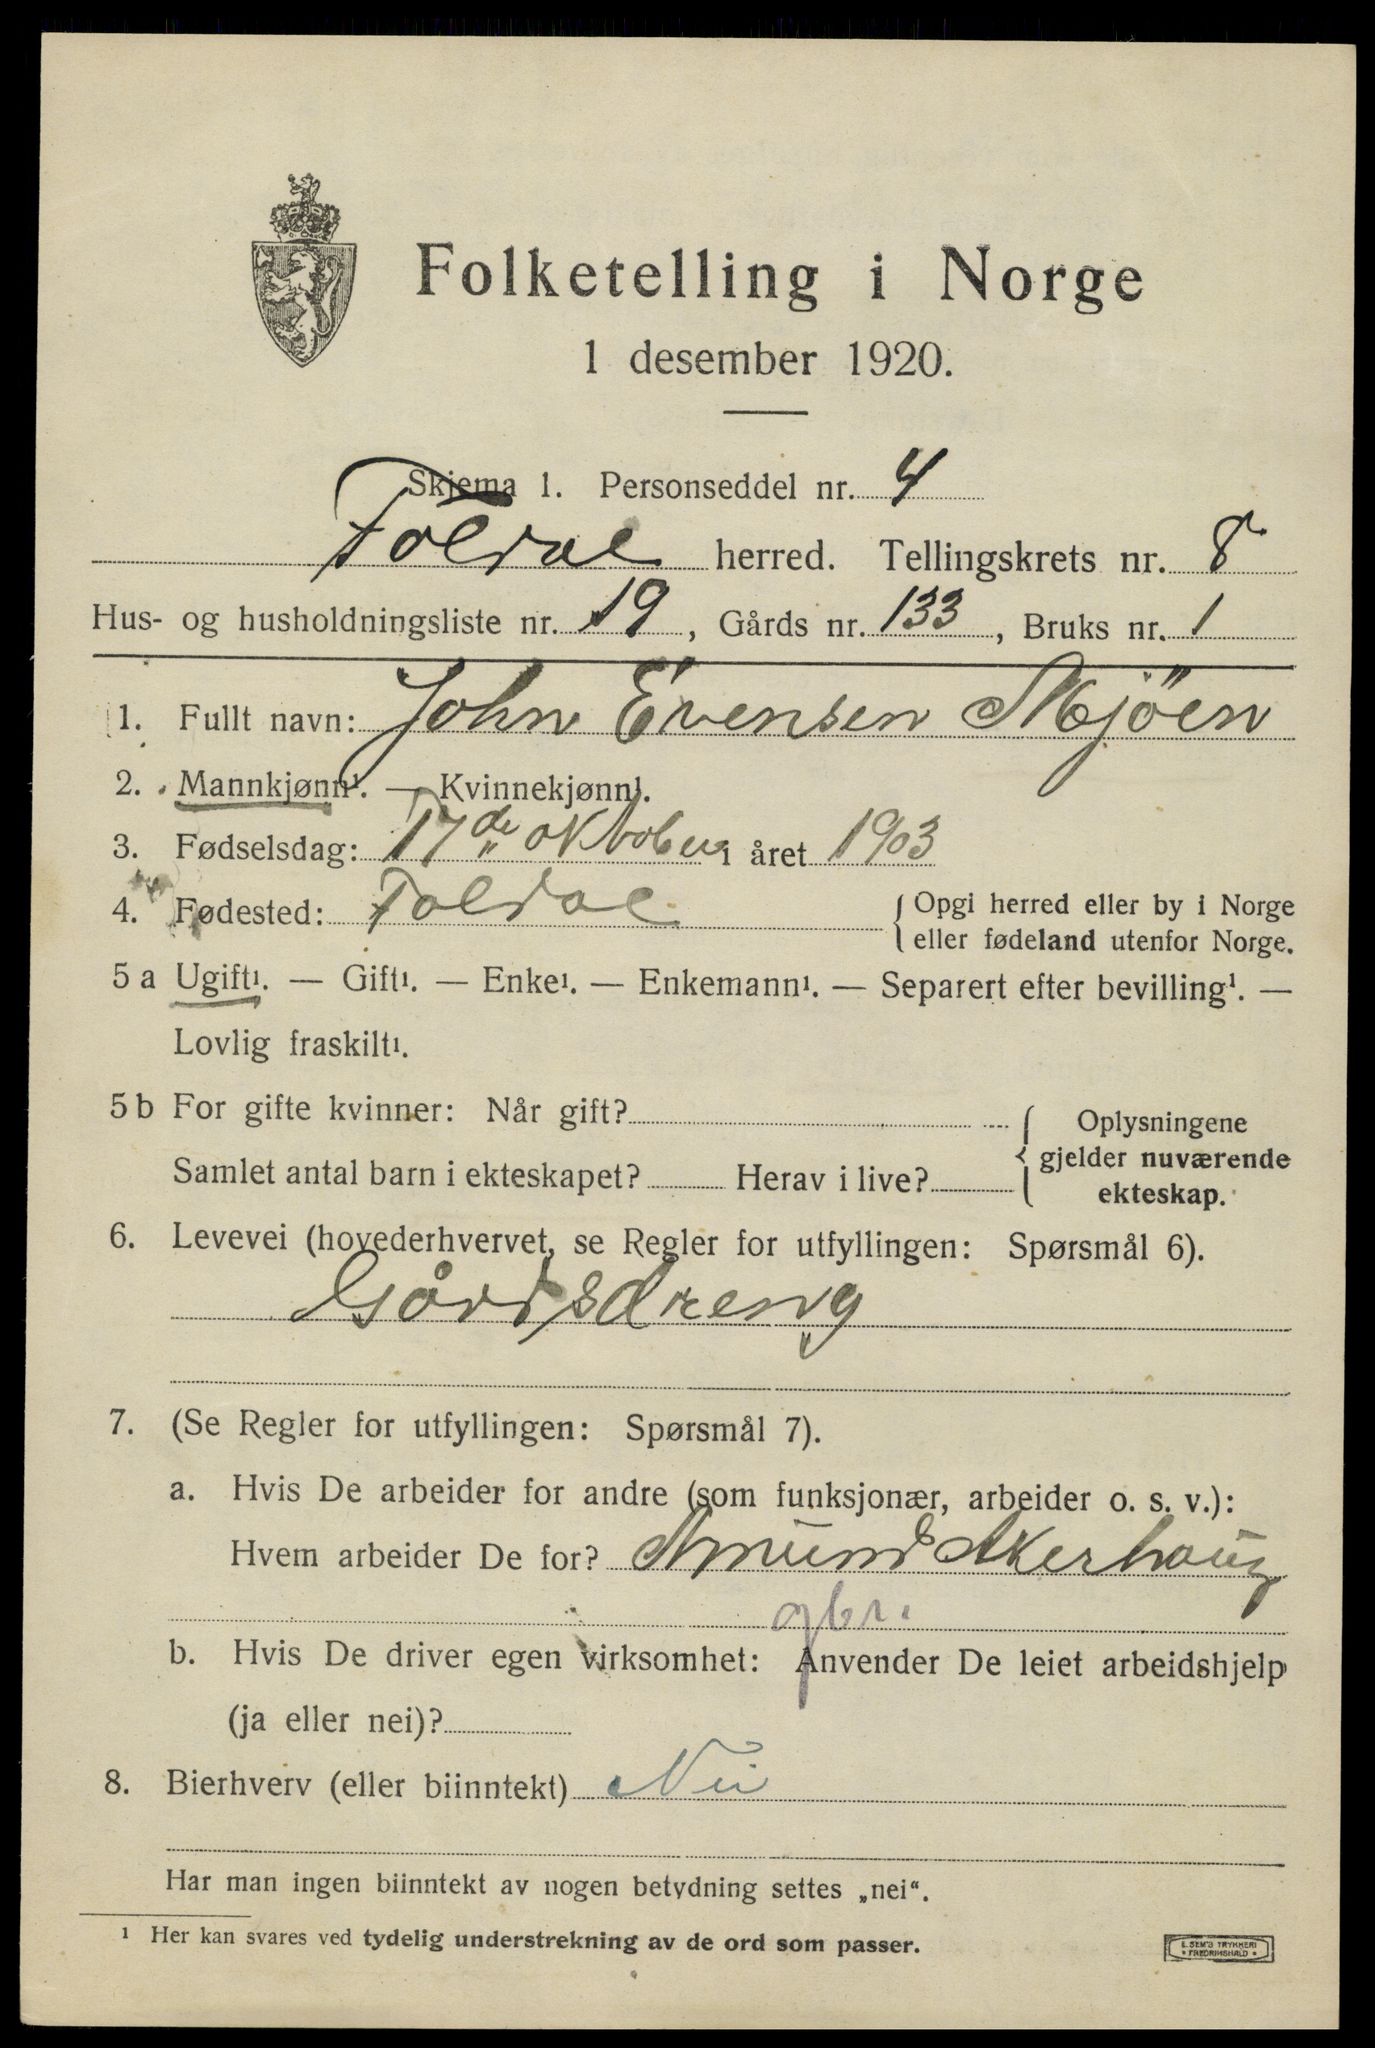 Folketelling i Norge
1 desember 1920.
Skjema 1. Personseddel nr. 4
Foldal herred. Tellingskrets nr. 8
Hus- og husholdningsliste nr. 19, Gårds nr. 133, Bruks nr. 1
1. Fullt navn: John Evensen Mjöen
2. Mannkjønn¹. — Kvinnekjønn¹.
3. Fødselsdag: 17de oktober i året 1903
4. Fødested: Foldal { Opgi herred eller by i Norge
eller fødeland utenfor Norge.
5 a Ugift¹. — Gift¹. — Enke¹. — Enkemann¹. — Separert efter bevilling¹. —
Lovlig fraskilt¹.
5 b For gifte kvinner: Når gift? { Oplysningene
gjelder nuværende
Samlet antal barn i ekteskapet? Herav i live?
ekteskap.
6. Levevei (hovederhvervet, se Regler for utfyllingen: Spørsmål 6).
Gårdsdreng
7. (Se Regler for utfyllingen: Spørsmål 7).
a. Hvis De arbeider for andre (som funksjonær, arbeider o. s. v.):
Hvem arbeider De for? Amund Akerhaug
gbr.
b. Hvis De driver egen virksomhet: Anvender De leiet arbeidshjelp
(ja eller nei)?
8. Bierhverv (eller biinntekt) Nei
Har man ingen biinntekt av nogen betydning settes „nei“.
¹ Her kan svares ved tydelig understrekning av de ord som passer.
E. SEM'S TRYKKERI
• FREDRIKSHALD •